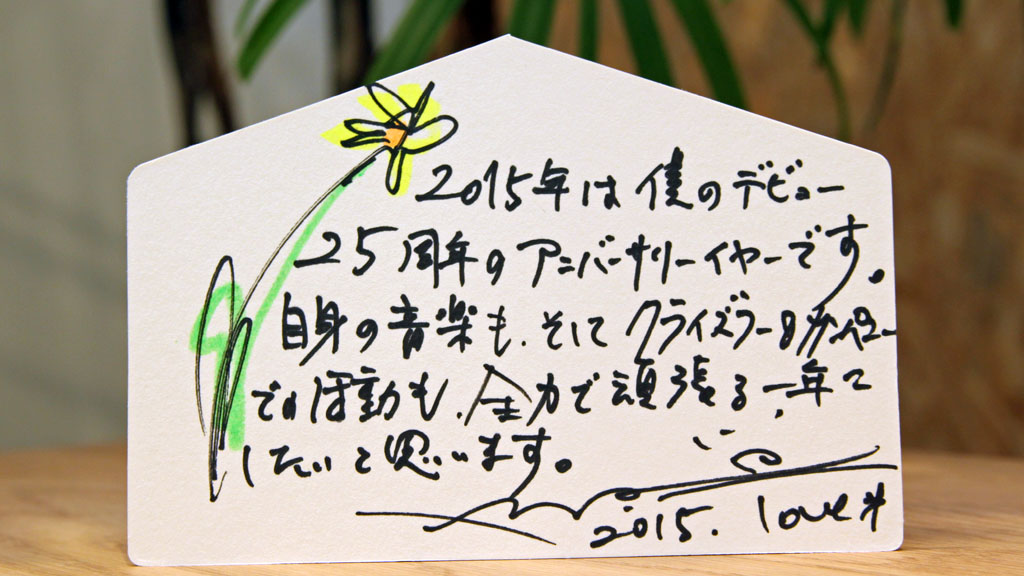 2015年は僕のデビュー
25周年のアニバーサリーイヤーです。
自身の音楽も、そしてクライズラー&カンパニー
での活動も、全力で頑張る一年に
したいと思います。
2015. love